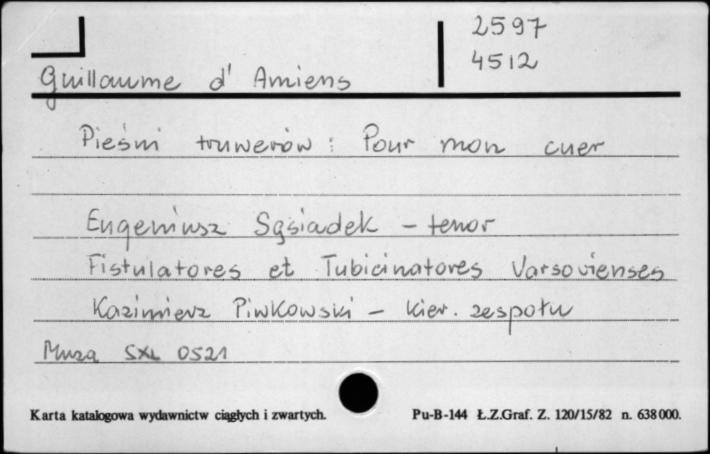 2597
4512
Guillaume d' Amiens
Pieśni truwerów : Pour mon cuer
Eugeniusz Sąsiadek - tenor
Fistulatores et Tubicinatores Varsovienses
Kazimierz Piwkowski - kier. zespołu
Muza SXL 0521
Karta katalogowa wydawnictw ciągłych i zwartych. Pu-B-144 Ł.Z.Graf. Z. 120/15/82 n. 638000.